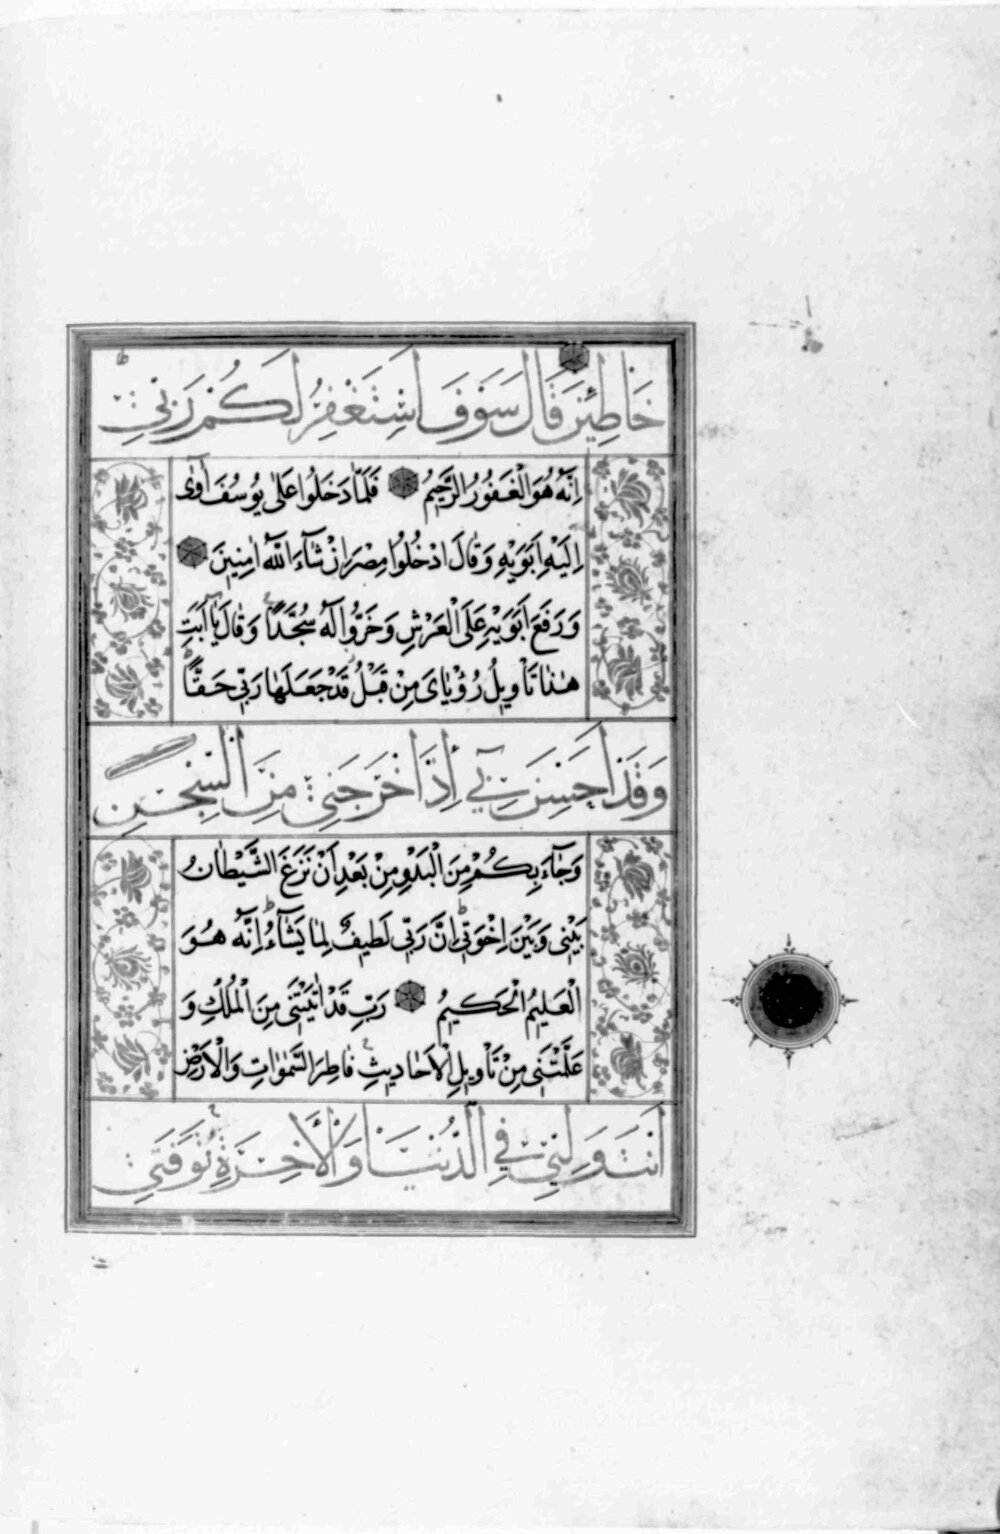 خَاطِئِينَ قَالَ سَوْفَ اَسْتَغْفِرُ لَكُمْ رَبِّي
اِنَّهُ هُوَ الْغَفُورُ الرَّحِيمُ فَلَمَّا دَخَلُوا عَلٰى يُوسُفَ اٰوٰى
اِلَيْهِ اَبَوَيْهِ وَقَالَ ادْخُلُوا مِصْرَ اِنْ شَاءَ اللّٰهُ اٰمِنِينَ
وَرَفَعَ اَبَوَيْهِ عَلَى الْعَرْشِ وَخَرُّوا لَهُ سُجَّدًا وَقَالَ يَا اَبَتِ
هٰذَا تَاْوِيلُ رُؤْيَايَ مِنْ قَبْلُ قَدْ جَعَلَهَا رَبِّي حَقًّا
وَقَدْ اَحْسَنَ بِي اِذْ اَخْرَجَنِي مِنَ السِّجْنِ
وَجَاءَ بِكُمْ مِنَ الْبَدْوِ مِنْ بَعْدِ اَنْ نَزَغَ الشَّيْطَانُ
بَيْنِي وَبَيْنَ اِخْوَتِي اِنَّ رَبِّي لَطِيفٌ لِمَا يَشَاءُ اِنَّهُ هُوَ
الْعَلِيمُ الْحَكِيمُ رَبِّ قَدْ اٰتَيْتَنِي مِنَ الْمُلْكِ وَ
عَلَّمْتَنِي مِنْ تَاْوِيلِ الْاَحَادِيثِ فَاطِرَ السَّمٰوَاتِ وَالْاَرْضِ
اَنْتَ وَلِيِّي فِي الدُّنْيَا وَالْاٰخِرَةِ تَوَفَّنِي